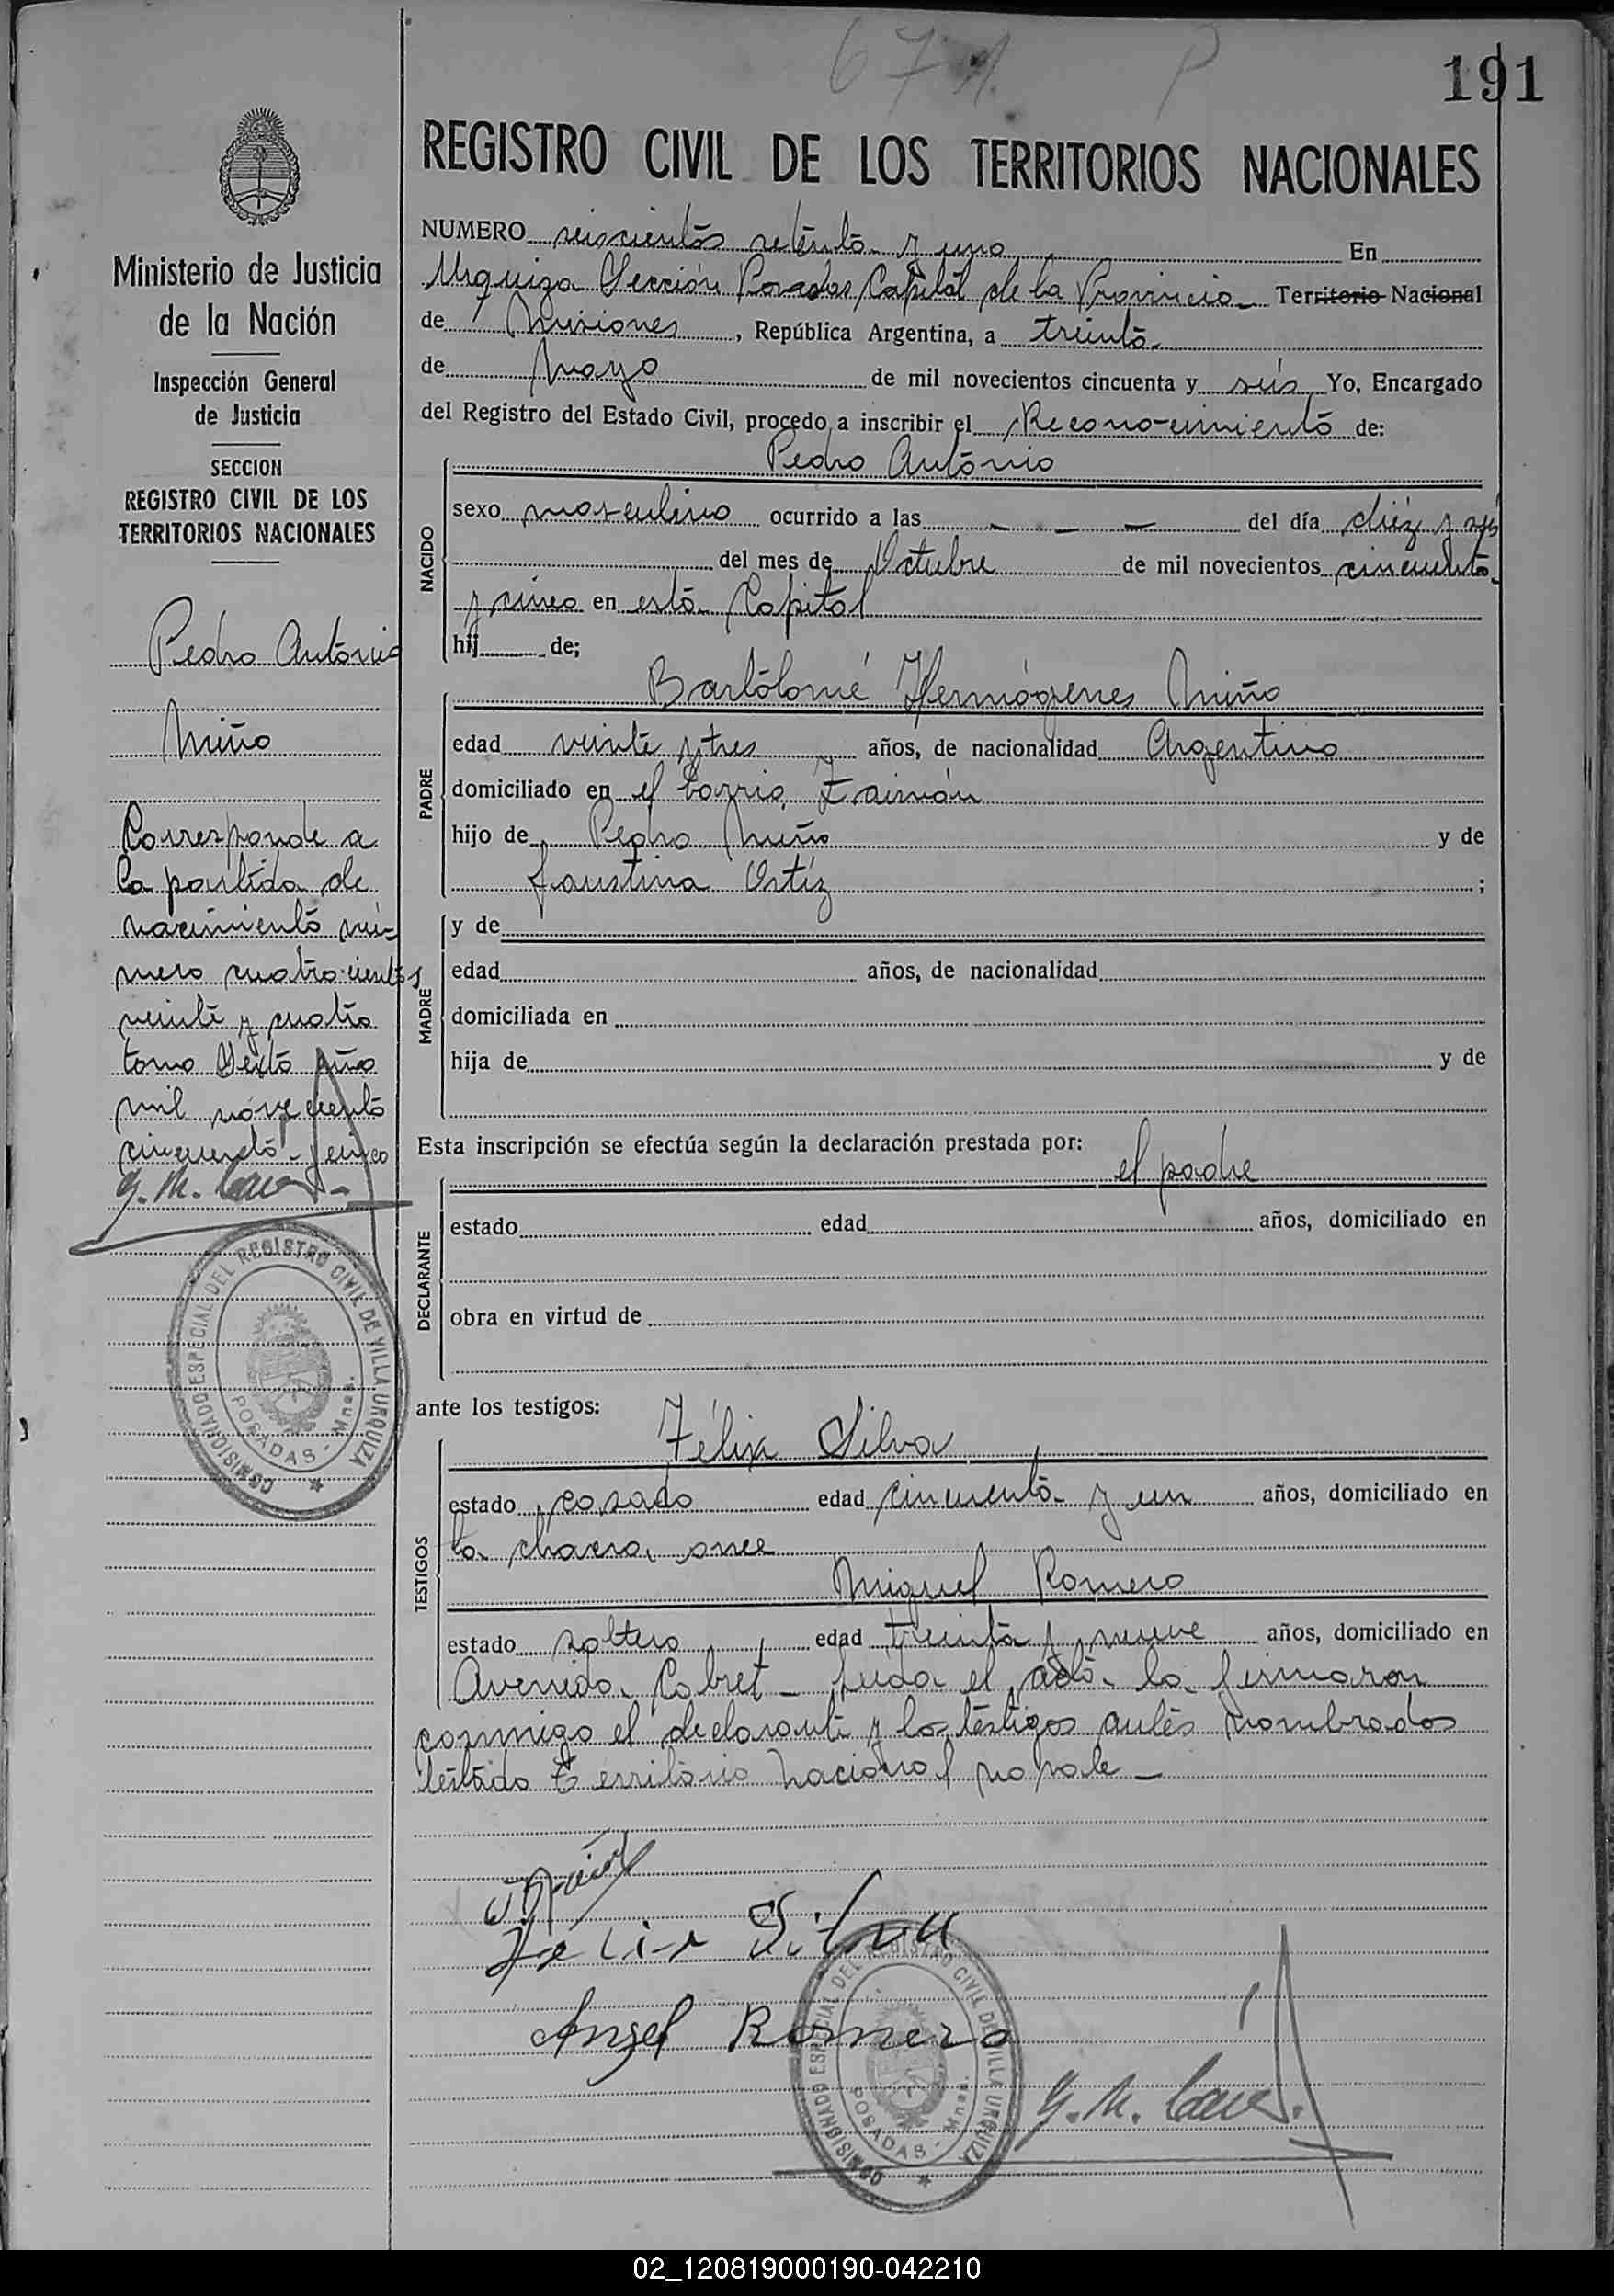 671. P
191
REGISTRO CIVIL DE LOS TERRITORIOS NACIONALES
Ministerio de Justicia
de la Nación
Inspección General
de Justicia
SECCION
REGISTRO CIVIL DE LOS
TERRITORIOS NACIONALES
Pedro Antonio
Miño
Corresponde a
la partida de
nacimiento nú-
mero cuatrocientos
veinte y cuatro
tomo Sexto año
mil novecientos
cincuenta y cinco
COMISIONADO ESPECIAL DEL REGISTRO CIVIL DE VILLA URQUIZA
POSADAS - Mnes.
NUMERO seiscientos setenta y uno En
Urquiza Sección Posadas Capital de la Provincia Territorio Nacional
de Misiones, República Argentina, a treinta
de Mayo de mil novecientos cincuenta y seis Yo, Encargado
del Registro del Estado Civil, procedo a inscribir el Reconocimiento de:
NACIDO
Pedro Antonio
sexo masculino ocurrido a las — — — del día diez y seis
del mes de Octubre de mil novecientos cincuenta
y cinco en esta Capital
hij de;
PADRE
Bartolomé Hermógenes Miño
edad veinte y tres años, de nacionalidad Argentino
domiciliado en el barrio Zaimán
hijo de Pedro Miño y de
Faustina Ortíz ;
MADRE
y de
edad años, de nacionalidad
domiciliada en
hija de y de
Esta inscripción se efectúa según la declaración prestada por:
el padre
DECLARANTE
estado edad años, domiciliado en
obra en virtud de
ante los testigos:
TESTIGOS
Félix Silva
estado casado edad cincuenta y un años, domiciliado en
la chacra once
Miguel Romero
estado soltero edad treinta y nueve años, domiciliado en
Avenida Cabret — Leída el acta la firmaron
conmigo el declarante y los testigos antes nombrados
testado Territorio Nacional no vale —
Felix Silva
Angel Romero
COMISIONADO ESPECIAL DEL REGISTRO CIVIL DE VILLA URQUIZA
POSADAS - Mnes.
02_120819000190-042210